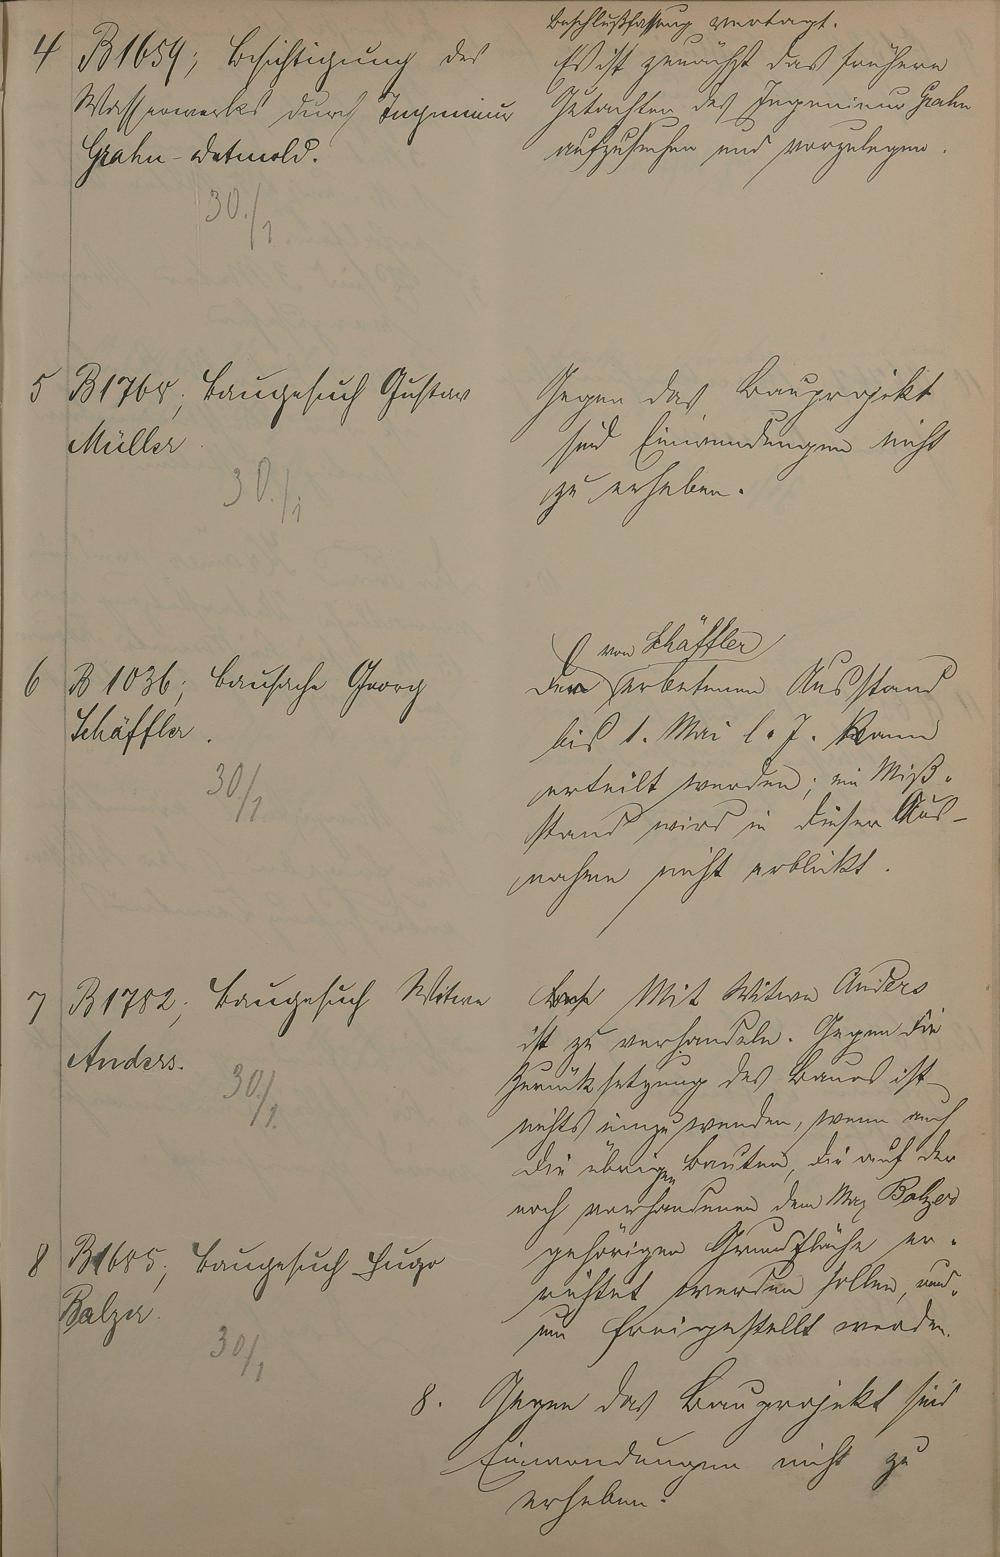 Beschlußfassung vertagt.
4 B 1659; Besichtigung des
Wasserwerks durch Ingenieur
Grahn-Detmold.
30./1
Es ist zunächst das frühere
Gutachten des Ingenieur Grahn
aufzusuchen und vorzulegen.
5 B 1768; Baugesuch Gustav
Müller.
30./1
Gegen das Bauprojekt
sind Einwendungen nicht
zu erheben.
6 B 1036; Bausache Georg
Schäffler.
30/1
von Schäffler
Den erbetenen Ausstand
bis 1. Mai l. J. kann
erteilt werden; ein Miß-
stand wird in dieser Aus-
nahme nicht erblickt.
7 B 1782; Baugesuch Witwe
Anders.
30/1.
Mit Witwe Anders
ist zu verhandeln. Gegen die
Zurücksetzung des Baues ist
nichts einzuwenden, wenn auch
die übrigen Bauten, die auf der
noch vorhandenen dem Max Balzer
gehörigen Grundfläche er-
richtet werden sollen, und
freigestellt werden.
8 B 1685; Baugesuch Hugo
Balzer.
30/1
8. Gegen das Bauprojekt sind
Einwendungen nicht zu
erheben.